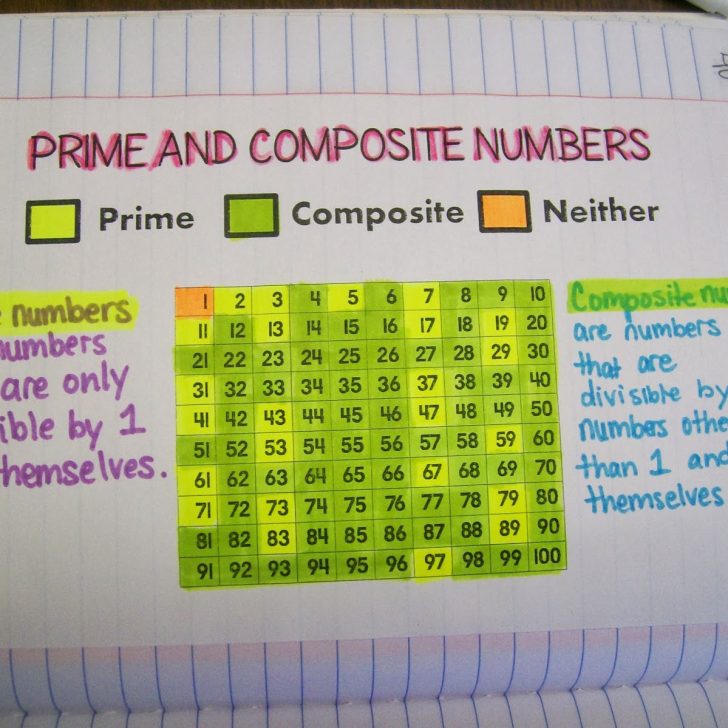 PRIME AND COMPOSITE NUMBERS
Prime Composite Neither
numbers
numbers
are only
ible by 1
themselves.
1 2 3 4 5 6 7 8 9 10
11 12 13 14 15 16 17 18 19 20
21 22 23 24 25 26 27 28 29 30
31 32 33 34 35 36 37 38 39 40
41 42 43 44 45 46 47 48 49 50
51 52 53 54 55 56 57 58 59 60
61 62 63 64 65 66 67 68 69 70
71 72 73 74 75 76 77 78 79 80
81 82 83 84 85 86 87 88 89 90
91 92 93 94 95 96 97 98 99 100
Composite nu
are numbers
that are
divisible by
numbers othe
than 1 and
themselves